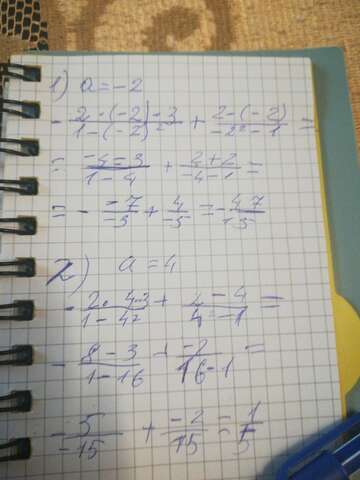 1) a = -2
- 2·(-2)-3 / 1-(-2)² + 2-(-2) / -2²-1 =
= -4-3 / 1-4 + 2+2 / -4-1 =
= - -7 / -3 + 4 / -5 = - 47 / 15
2) a = 4
- 2·4-3 / 1-4² + 2-4 / 4²-1 =
- 8-3 / 1-16 + -2 / 16-1 =
- 5 / -15 + -2 / 15 = 1 / 5